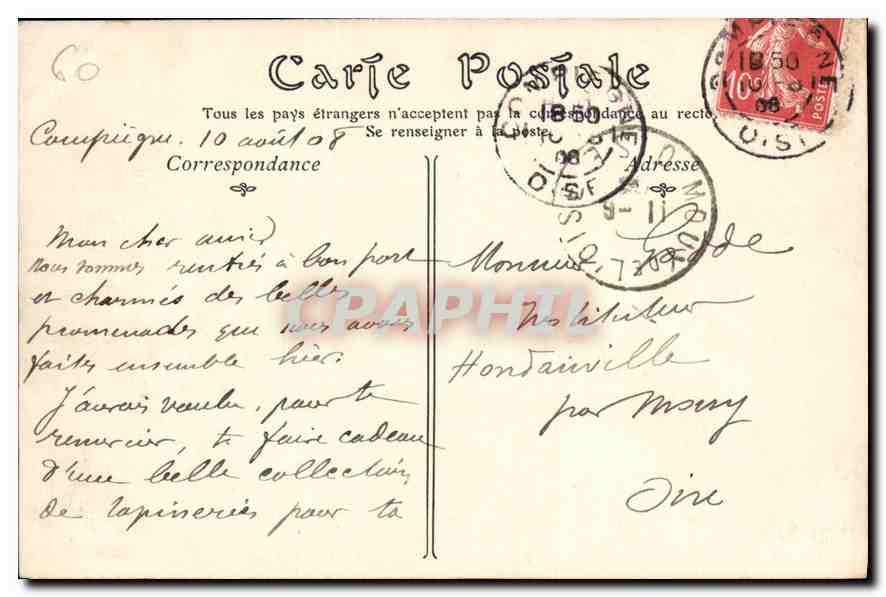 60
Carte Postale
Tous les pays étrangers n'acceptent pas la correspondance au recto
Se renseigner à la poste.
Compiègne. 10 août 08
Correspondance
Adresse
Mon cher ami,
Nous sommes rentrés à bon port
et charmés des belles
promenades que nous avons
faites ensemble hier.
J'aurais voulu, pour te
remercier, te faire cadeau
d'une belle collection
de tapisseries pour ta
Monsieur
Instituteur
Hondainville
par Mouy
Oise
10
POSTES
18 50
10 -8
08
OISE
18 50
08
OISE
MOUY
9- 11
OISE
CPAPHIL